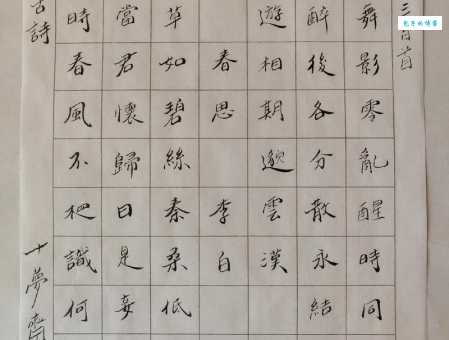 三百首
舞影零亂醒時同
醉後各分散永結
遊相期邈雲漢
春思 李白
草如碧絲秦桑低
當君懷歸日是妾
時春風不相識何
古詩
十夢齋